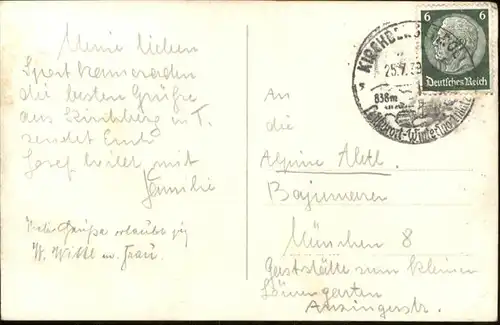 Meine lieben
Sportkameraden
die besten Grüße
aus Kirchberg in T.
sendet Euch
Josef mit
Familie
Grüße erlaubt sich
W. Wittl u. Frau.
KIRCHBERG TIROL
25.7.39
838m
Luftkurort-Wintersportplatz
6 6
Deutsches Reich
An
die
Alpine Abtl.
Bajuwaren
München 8
Gaststätte zum kleinen
Löwengarten
Anzingerstr.